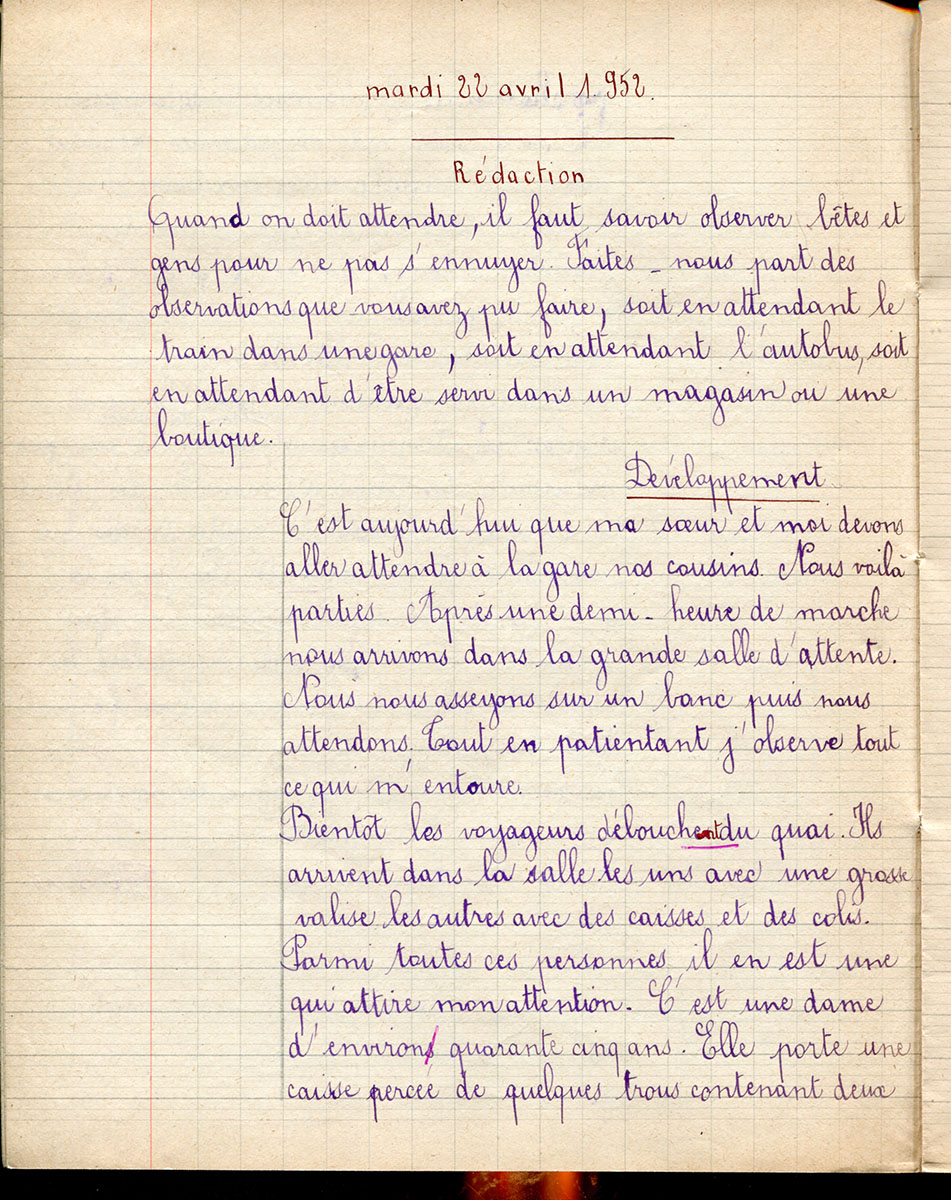 mardi 22 avril 1.952.
Rédaction
Quand on doit attendre, il faut savoir observer bêtes et
gens pour ne pas s'ennuyer. Faites-nous part des
observations que vous avez pu faire, soit en attendant le
train dans une gare, soit en attendant l'autobus, soit
en attendant d'être servi dans un magasin ou une
boutique.
Développement
C'est aujourd'hui que ma sœur et moi devons
aller attendre à la gare nos cousins. Nous voilà
parties. Après une demi-heure de marche
nous arrivons dans la grande salle d'attente.
Nous nous asseyons sur un banc puis nous
attendons. Tout en patientant j'observe tout
ce qui m'entoure.
Bientôt les voyageurs débouchent du quai. Ils
arrivent dans la salle les uns avec une grosse
valise, les autres avec des caisses et des colis.
Parmi toutes ces personnes, il en est une
qui attire mon attention. C'est une dame
d'environ quarante cinq ans. Elle porte une
caisse percée de quelques trous contenant deux